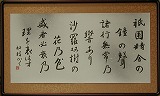 祇園精舎の
鐘の聲
諸行無常乃
響あり
沙羅双樹の
花乃色
盛者必衰乃
理を表はす